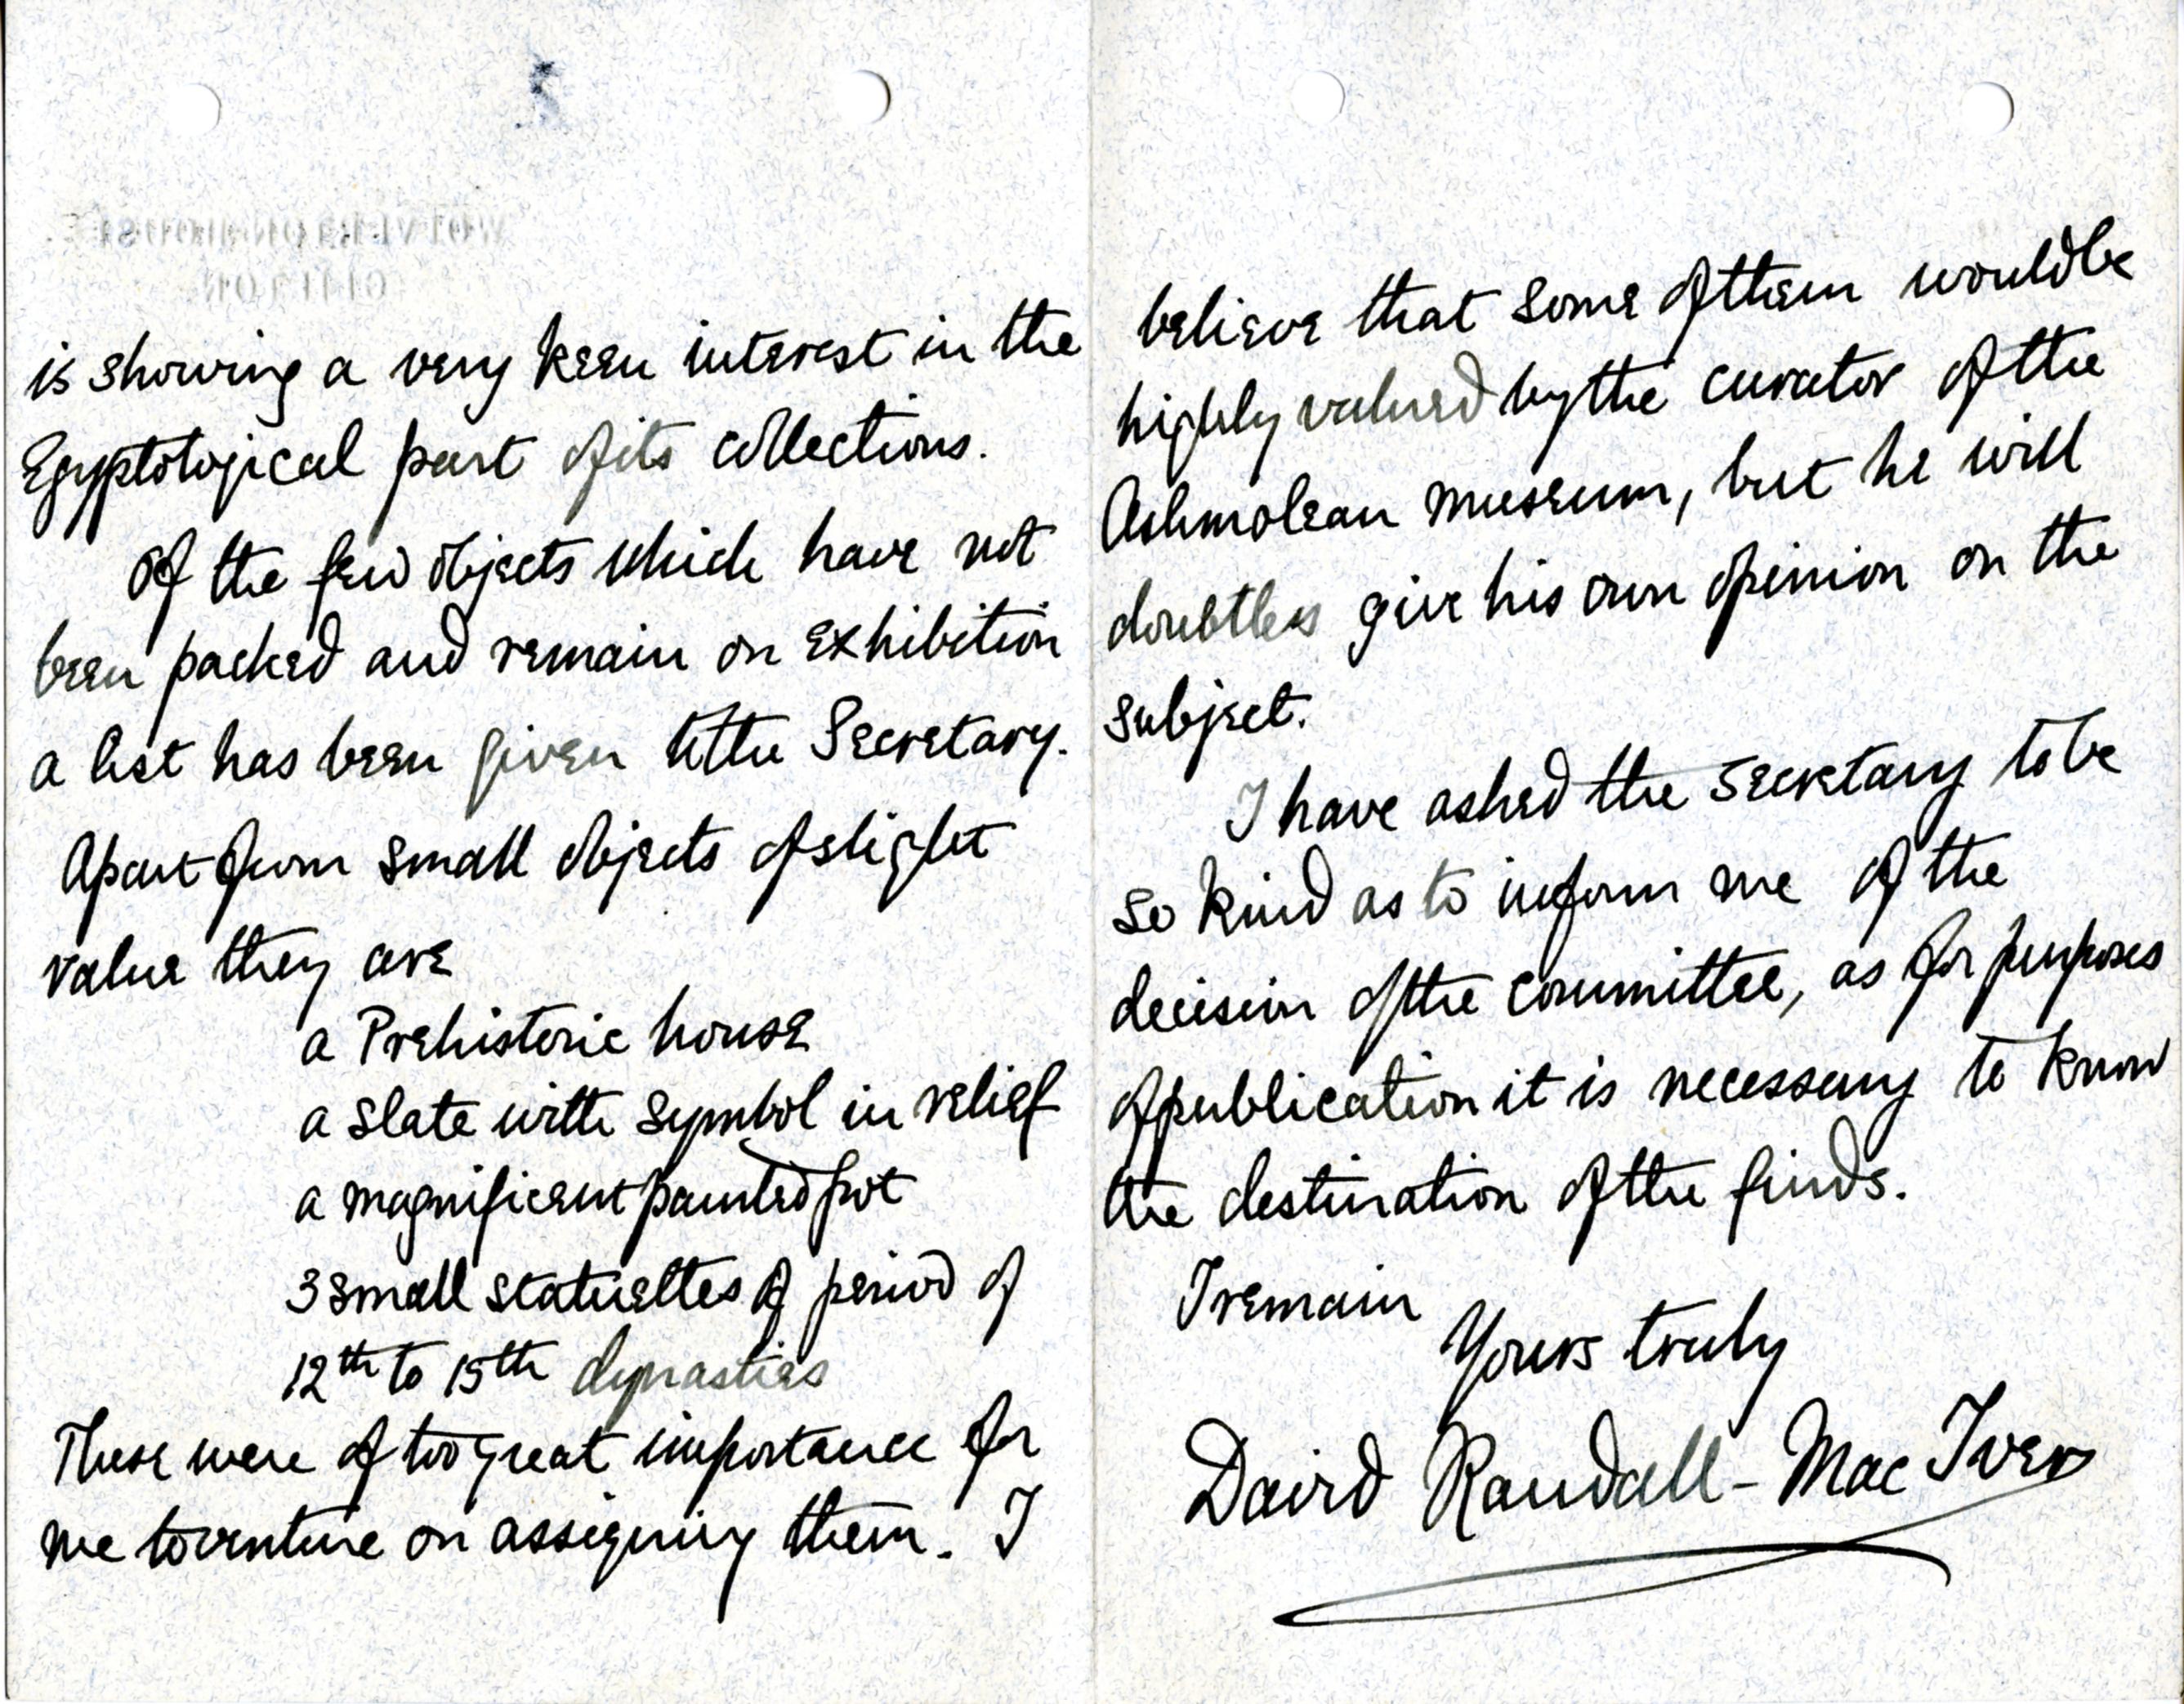 is showing a very keen interest in the
Egyptological part of its collections.
Of the few objects which have not
been packed and remain on exhibition
a list has been given to the Secretary.
Apart from small objects of slight
value they are
a Prehistoric house
a slate with symbol in relief
a magnificent painted pot
3 small statuettes of period of
12th to 15th dynasties
These were of too great importance for
me to venture on assigning them. I
believe that some of them would be
highly valued by the curator of the
Ashmolean museum, but he will
doubtless give his own opinion on the
subject.
I have asked the Secretary to be
so kind as to inform me of the
decision of the committee, as for purposes
of publication it is necessary to know
the destination of the finds.
I remain
Yours truly
David Randall-Mac Iver